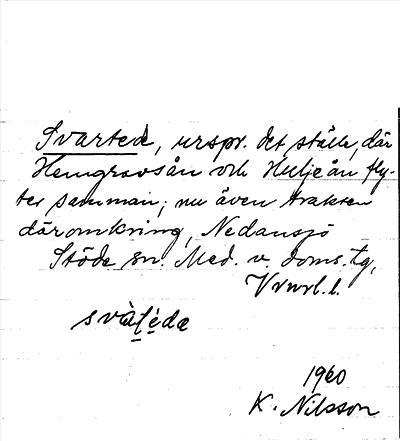 Svartede, urspr. det ställe, där
Hemgravsån och Huljeån fly-
ter samman; nu även trakten
däromkring, Nedansjö
Stöde sn. Med. v. doms. tg,
svàłède
1960
K. Nilsson